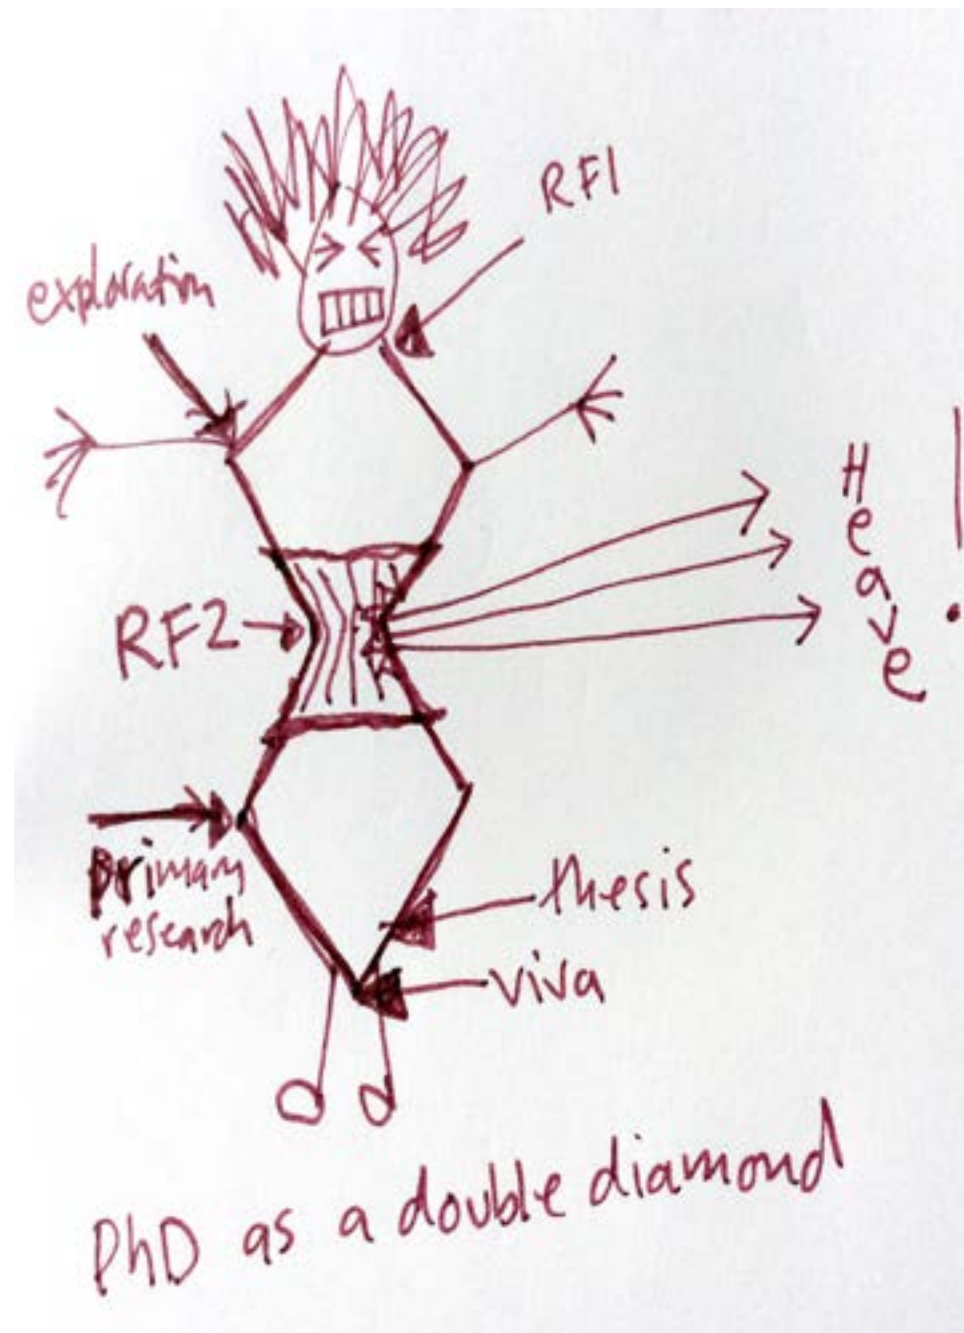 RF1
exploration
Heave!
RF2
primary
research
thesis
viva
PhD as a double diamond